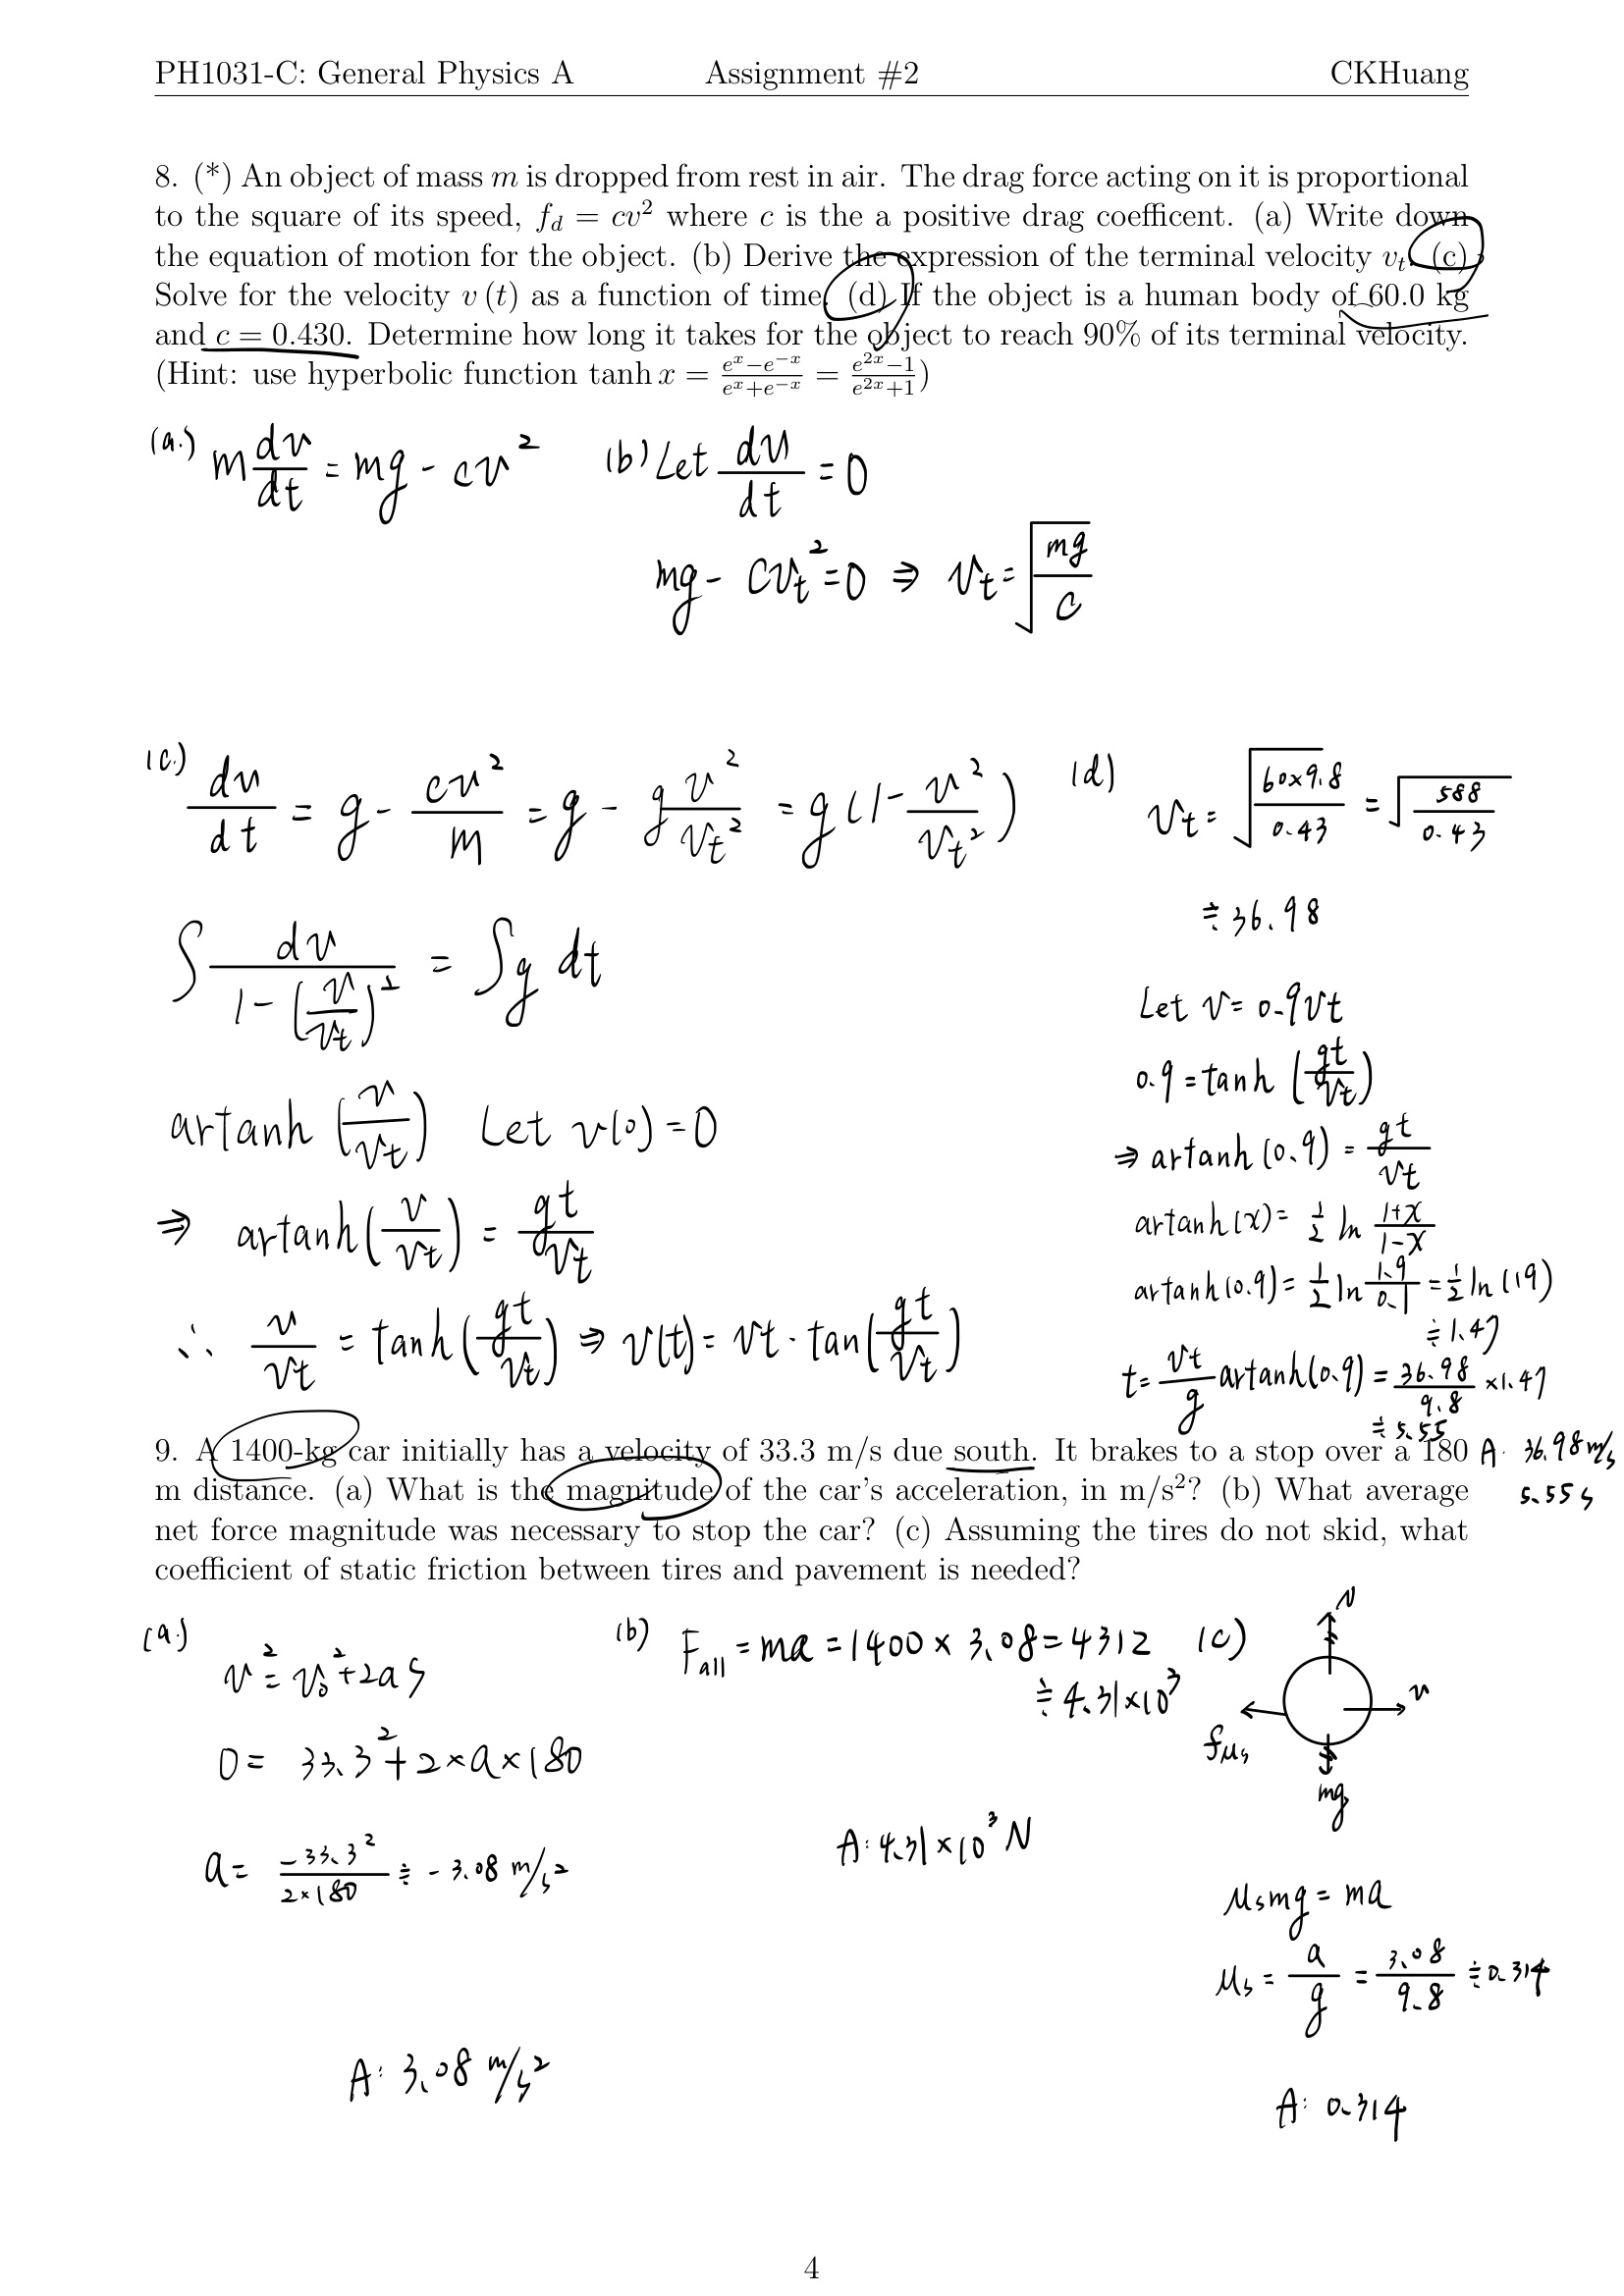 PH1031-C: General Physics A Assignment #2 CKHuang
8. (*) An object of mass m is dropped from rest in air. The drag force acting on it is proportional
to the square of its speed, f_d = cv² where c is the a positive drag coefficent. (a) Write down
the equation of motion for the object. (b) Derive the expression of the terminal velocity v_t. (c)
Solve for the velocity v (t) as a function of time. (d) If the object is a human body of 60.0 kg
and c = 0.430. Determine how long it takes for the object to reach 90% of its terminal velocity.
(Hint: use hyperbolic function tanh x = (e^x−e^{−x})/(e^x+e^{−x}) = (e^{2x}−1)/(e^{2x}+1))
(a.) m dv/dt = mg - cv²
(b) Let dv/dt = 0
mg - cv_t² = 0 ⇒ v_t = √(mg/c)
(c.) dv/dt = g - cv²/m = g - g v²/v_t² = g(1 - v²/v_t²)
∫ dv/(1-(v/v_t)²) = ∫g dt
artanh (v/v_t) Let v(0) = 0
⇒ artanh(v/v_t) = gt/v_t
∴ v/v_t = tanh(gt/v_t) ⇒ v(t) = v_t · tan(gt/v_t)
(d) v_t = √(60×9.8/0.43) = √(588/0.43)
≒ 36.98
Let v = 0.9v_t
0.9 = tanh (gt/v_t)
⇒ artanh(0.9) = gt/v_t
artanh(x) = 1/2 ln (1+x)/(1-x)
artanh(0.9) = 1/2 ln 1.9/0.1 = 1/2 ln (19)
≒ 1.47
t = v_t/g artanh(0.9) = 36.98/9.8 × 1.47
≒ 5.55
A: 36.98 m/s
5.55 s
9. A 1400-kg car initially has a velocity of 33.3 m/s due south. It brakes to a stop over a 180
m distance. (a) What is the magnitude of the car's acceleration, in m/s²? (b) What average
net force magnitude was necessary to stop the car? (c) Assuming the tires do not skid, what
coefficient of static friction between tires and pavement is needed?
(a.)
v² = v₀² + 2aS
0 = 33.3² + 2×a×180
a = -33.3²/(2×180) ≒ -3.08 m/s²
A: 3.08 m/s²
(b) F_all = ma = 1400 × 3.08 = 4312
≒ 4.31×10³
A: 4.31×10³ N
(c)
N
v
fμs
mg
μsmg = ma
μs = a/g = 3.08/9.8 ≒ 0.314
A: 0.314
4